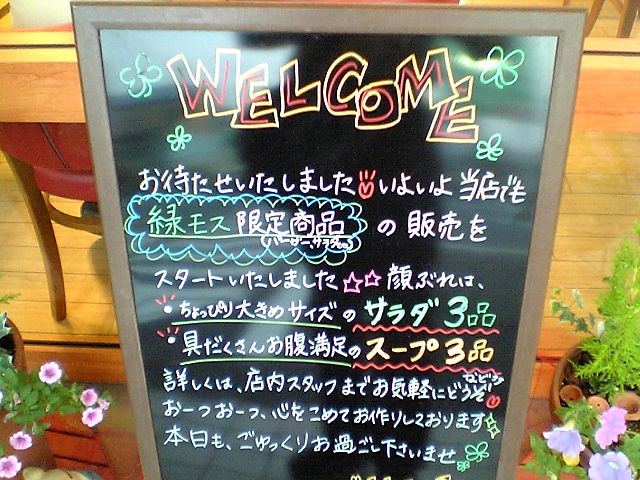 WELCOME
お待たせいたしました いよいよ当店でも
緑モス限定商品 の販売を
(バーガー、サラダetc)
スタートいたしました☆☆ 顔ぶれは、
・ちょっぴり大きめサイズのサラダ3品
・具だくさんお腹満足のスープ3品
詳しくは、店内スタッフまでお気軽にどうぞ
お一つお一つ、心をこめてお作りしております
本日も、ごゆっくりお過ごし下さいませ